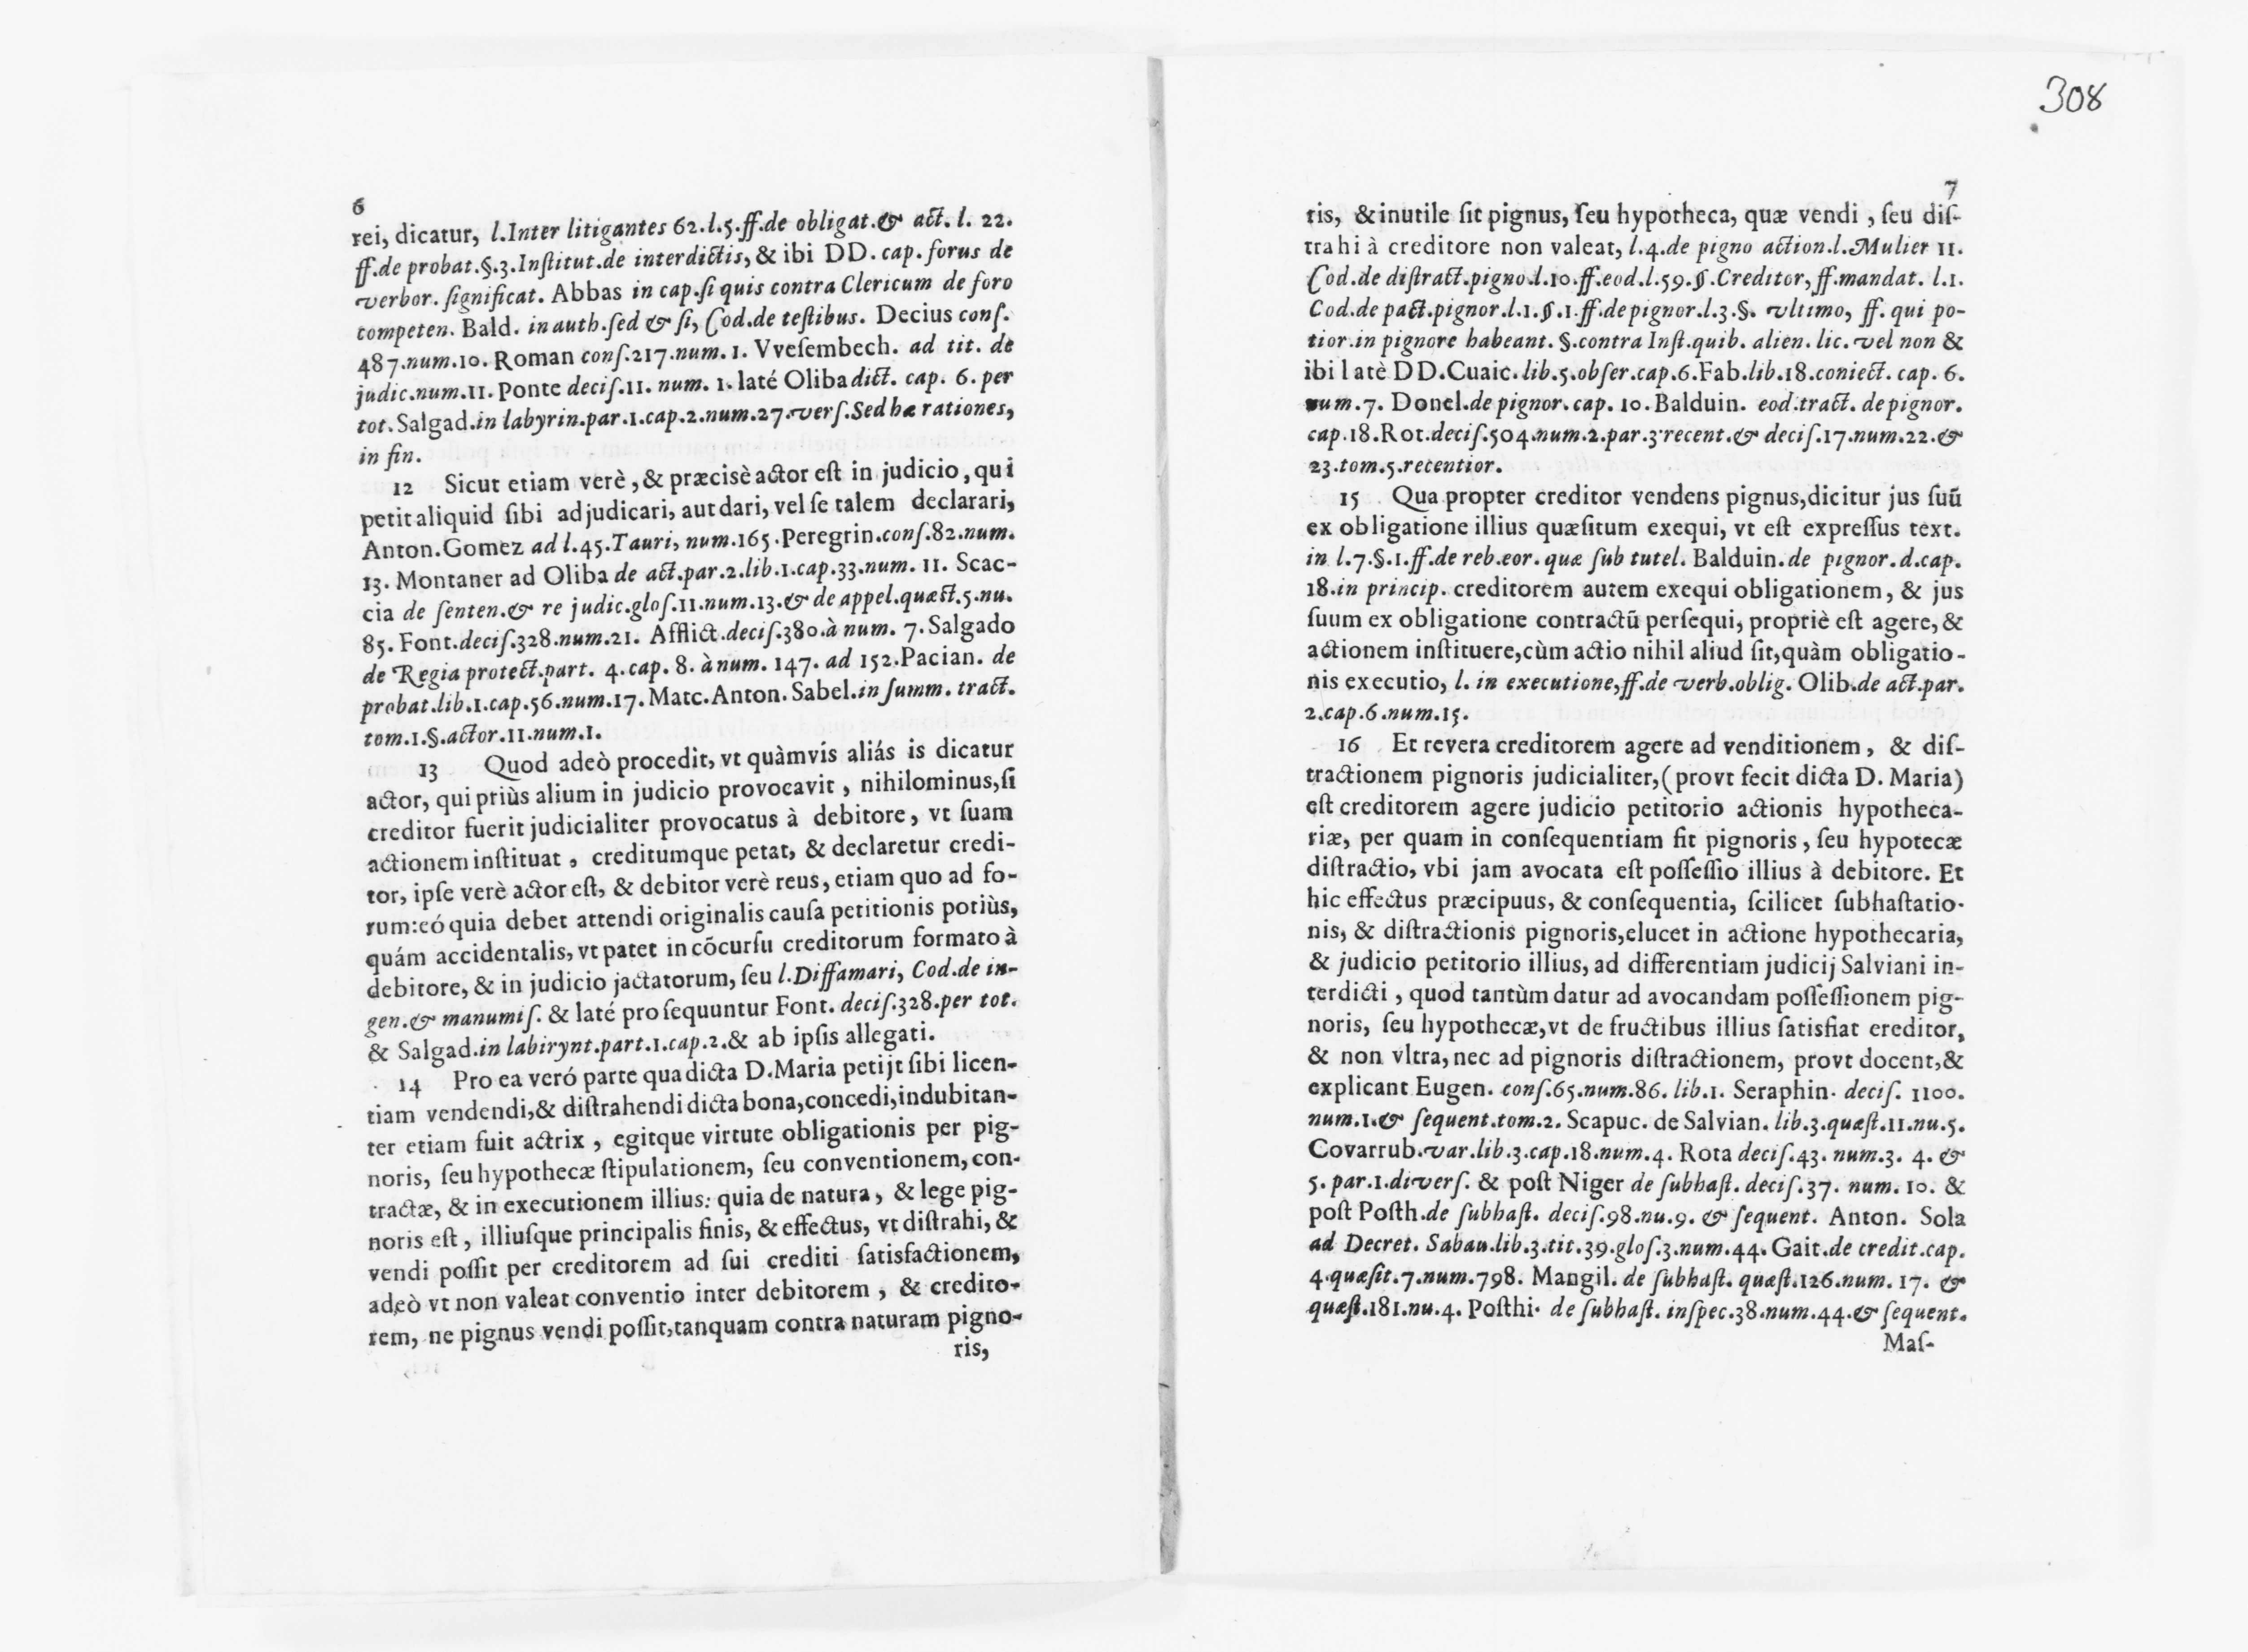 6
rei, dicatur, l.Inter litigantes 62.l.5.ff.de obligat.& act. l. 22.
ff.de probat.§.3.Inſtitut.de interdictis, & ibi DD. cap. forus de
verbor. ſignificat. Abbas in cap.ſi quis contra Clericum de foro
competen. Bald. in auth.ſed & ſi, Cod.de teſtibus. Decius conſ.
487.num.10. Roman conſ.217.num. 1. Vveſembech. ad tit. de
judic.num.11. Ponte deciſ.11. num. 1. laté Oliba dict. cap. 6. per
tot. Salgad.in labyrin.par.1.cap.2.num.27.verſ.Sed hæ rationes,
in fin.
12 Sicut etiam verè, & præcisè actor eſt in judicio, qui
petit aliquid ſibi adjudicari, aut dari, vel ſe talem declarari,
Anton.Gomez ad l.45.Tauri, num.165.Peregrin.conſ.82.num.
13. Montaner ad Oliba de act.par.2.lib.1.cap.33.num. 11. Scac-
cia de ſenten.& re judic.gloſ.11.num.13.& de appel.quæſt.5.nu.
85. Font.deciſ.328.num.21. Afflict.deciſ.380.à num. 7. Salgado
de Regia protect.part. 4. cap. 8. à num. 147. ad 152.Pacian. de
probat.lib.1.cap.56.num.17. Matc.Anton. Sabel.in ſumm. tract.
tom.1.§.actor.11.num.1.
13 Quod adeò procedit, vt quàmvis aliás is dicatur
actor, qui priùs alium in judicio provocavit, nihilominus, ſi
creditor fuerit judicialiter provocatus à debitore, vt ſuam
actionem inſtituat, creditumque petat, & declaretur credi-
tor, ipſe verè actor eſt, & debitor verè reus, etiam quo ad fo-
rum: eó quia debet attendi originalis cauſa petitionis potiùs,
quám accidentalis, vt patet in cõcurſu creditorum formato à
debitore, & in judicio jactatorum, ſeu l.Diffamari, Cod.de in-
gen.& manumiſ. & laté proſequuntur Font. deciſ.328.per tot.
& Salgad.in labirynt.part.1.cap.2.& ab ipſis allegati.
14 Pro ea veró parte qua dicta D.Maria petijt ſibi licen-
tiam vendendi, & diſtrahendi dicta bona, concedi, indubitan-
ter etiam fuit actrix, egitque virtute obligationis per pig-
noris, ſeu hypothecæ ſtipulationem, ſeu conventionem, con-
tractæ, & in executionem illius: quia de natura, & lege pig-
noris eſt, illiuſque principalis finis, & effectus, vt diſtrahi, &
vendi poſſit per creditorem ad ſui crediti ſatisfactionem,
adeò vt non valeat conventio inter debitorem, & credito-
rem, ne pignus vendi poſſit, tanquam contra naturam pigno-
ris,
308
7
ris, & inutile ſit pignus, ſeu hypotheca, quæ vendi, ſeu diſ-
trahi à creditore non valeat, l.4.de pigno action.l.Mulier 11.
Cod.de diſtract.pigno.l.10.ff.eod.l.59.§.Creditor, ff.mandat. l.1.
Cod.de pact.pignor.l.1.§.1.ff.de pignor.l.3.§. vltimo, ff. qui po-
tior.in pignore habeant. §.contra Inſt.quib. alien. lic. vel non &
ibi latè DD.Cuaic.lib.5.obſer.cap.6.Fab.lib.18.coniect. cap. 6.
num.7. Donel.de pignor.cap. 10. Balduin. eod.tract. de pignor.
cap.18.Rot.deciſ.504.num.2.par.3.recent.& deciſ.17.num.22.&
23.tom.5.recentior.
15 Qua propter creditor vendens pignus, dicitur jus ſuũ
ex obligatione illius quæſitum exequi, vt eſt expreſſus text.
in l.7.§.1.ff.de reb.eor. quæ ſub tutel. Balduin.de pignor. d.cap.
18.in princip. creditorem autem exequi obligationem, & jus
ſuum ex obligatione contractũ perſequi, propriè eſt agere, &
actionem inſtituere, cùm actio nihil aliud ſit, quàm obligatio-
nis executio, l. in executione, ff.de verb.oblig. Olib.de act.par.
2.cap.6.num.15.
16 Et revera creditorem agere ad venditionem, & diſ-
tractionem pignoris judicialiter, (provt fecit dicta D. Maria)
eſt creditorem agere judicio petitorio actionis hypotheca-
riæ, per quam in conſequentiam fit pignoris, ſeu hypotecæ
diſtractio, vbi jam avocata eſt poſſeſſio illius à debitore. Et
hic effectus præcipuus, & conſequentia, ſcilicet ſubhaſtatio-
nis, & diſtractionis pignoris, elucet in actione hypothecaria,
& judicio petitorio illius, ad differentiam judicij Salviani in-
terdicti, quod tantùm datur ad avocandam poſſeſſionem pig-
noris, ſeu hypothecæ, vt de fructibus illius ſatisfiat ereditor,
& non vltra, nec ad pignoris diſtractionem, provt docent, &
explicant Eugen. conſ.65.num.86. lib.1. Seraphin. deciſ. 1100.
num.1.& ſequent.tom.2. Scapuc. de Salvian. lib.3.quæſt.11.nu.5.
Covarrub.var.lib.3.cap.18.num.4. Rota deciſ.43. num.3. 4. &
5. par.1.diverſ. & poſt Niger de ſubhaſt. deciſ.37. num. 10. &
poſt Poſth.de ſubhaſt. deciſ.98.nu.9. & ſequent. Anton. Sola
ad Decret. Sabau.lib.3.tit.39.gloſ.3.num.44. Gait.de credit.cap.
4.quæſit.7.num.798. Mangil. de ſubhaſt. quæſt.126.num. 17. &
quæſt.181.nu.4. Poſthi. de ſubhaſt. inſpec.38.num.44.& ſequent.
Maſ-